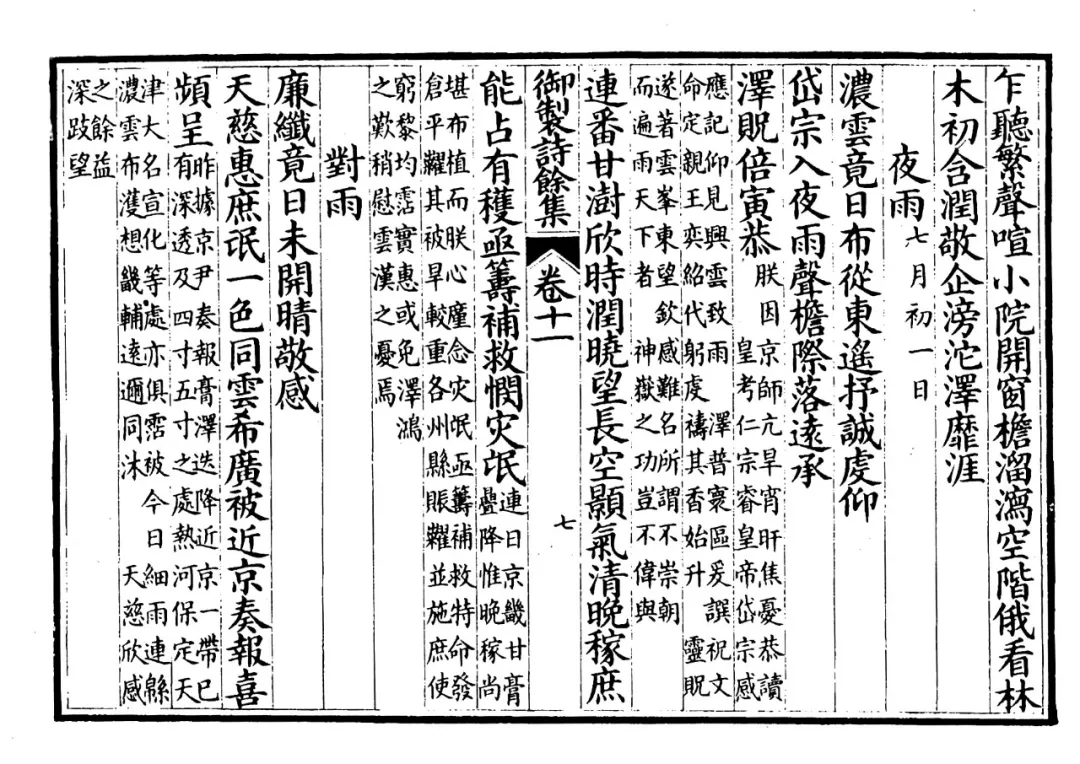 乍聽繁聲喧小院開窗檐溜瀉空階俄看林
木初含潤敬企滂沱澤靡涯
夜雨七月初一日
濃雲竟日布從東遙抒誠虔仰
岱宗入夜雨聲檐際落遠承
澤貺倍寅恭朕因京師亢旱宵旰焦憂恭讀
皇考仁宗睿皇帝岱宗感
應記仰見興雲致雨澤普寰區爰譔祝文
命定親王奕紹代躬虔禱其香始升靈貺
遂著雲峯東望欽感難名所謂不崇朝
而遍雨天下者神嶽之功豈不偉與
連番甘澍欣時潤曉望長空顥氣清晚稼庶
御製詩餘集 卷十一 七
能占有穫亟籌補救憫灾氓連日京畿甘膏
疊降惟晚稼尚
堪布植而朕心廑念灾氓亟籌補救特命發
倉平糶其被旱較重各州縣賑糶並施庶使
窮黎均霑實惠或免澤鴻
之歎稍慰雲漢之憂焉
對雨
廉纖竟日未開晴敬感
天慈惠庶氓一色同雲希廣被近京奏報喜
頻呈昨據京尹奏報膏澤迭降近京一帶已
有深透及四寸五寸之處熱河保定天
津大名宣化等處亦俱霑被今日細雨連緜
濃雲布濩想畿輔遠邇同沐天慈欣感
之餘益
深跂望